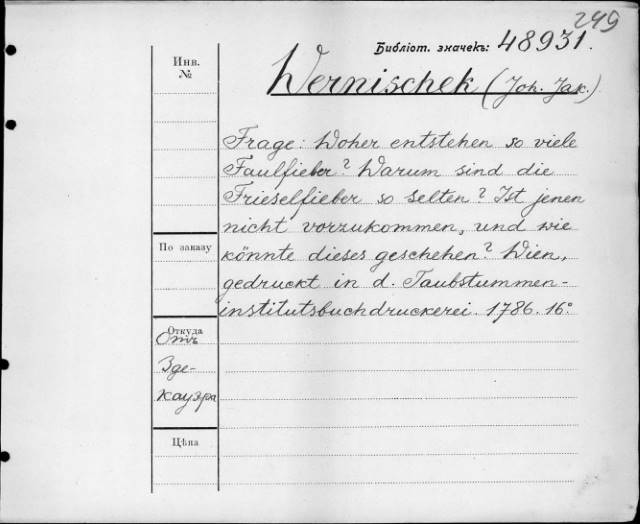 249
Библіот. значекъ: 48931.
Wernischek (Joh. Jak.)
Инв.
№
Frage: Woher entstehen so viele
Faulfieber? Warum sind die
Frieselfieber so selten? Ist jenen
nicht vorzukommen, und wie
könnte dieses geschehen? Wien,
gedruckt in d. Taubstummen-
institutsbuchdruckerei. 1786. 16°
По заказу
Откуда
Отъ
Зде-
кауэра
Цѣна